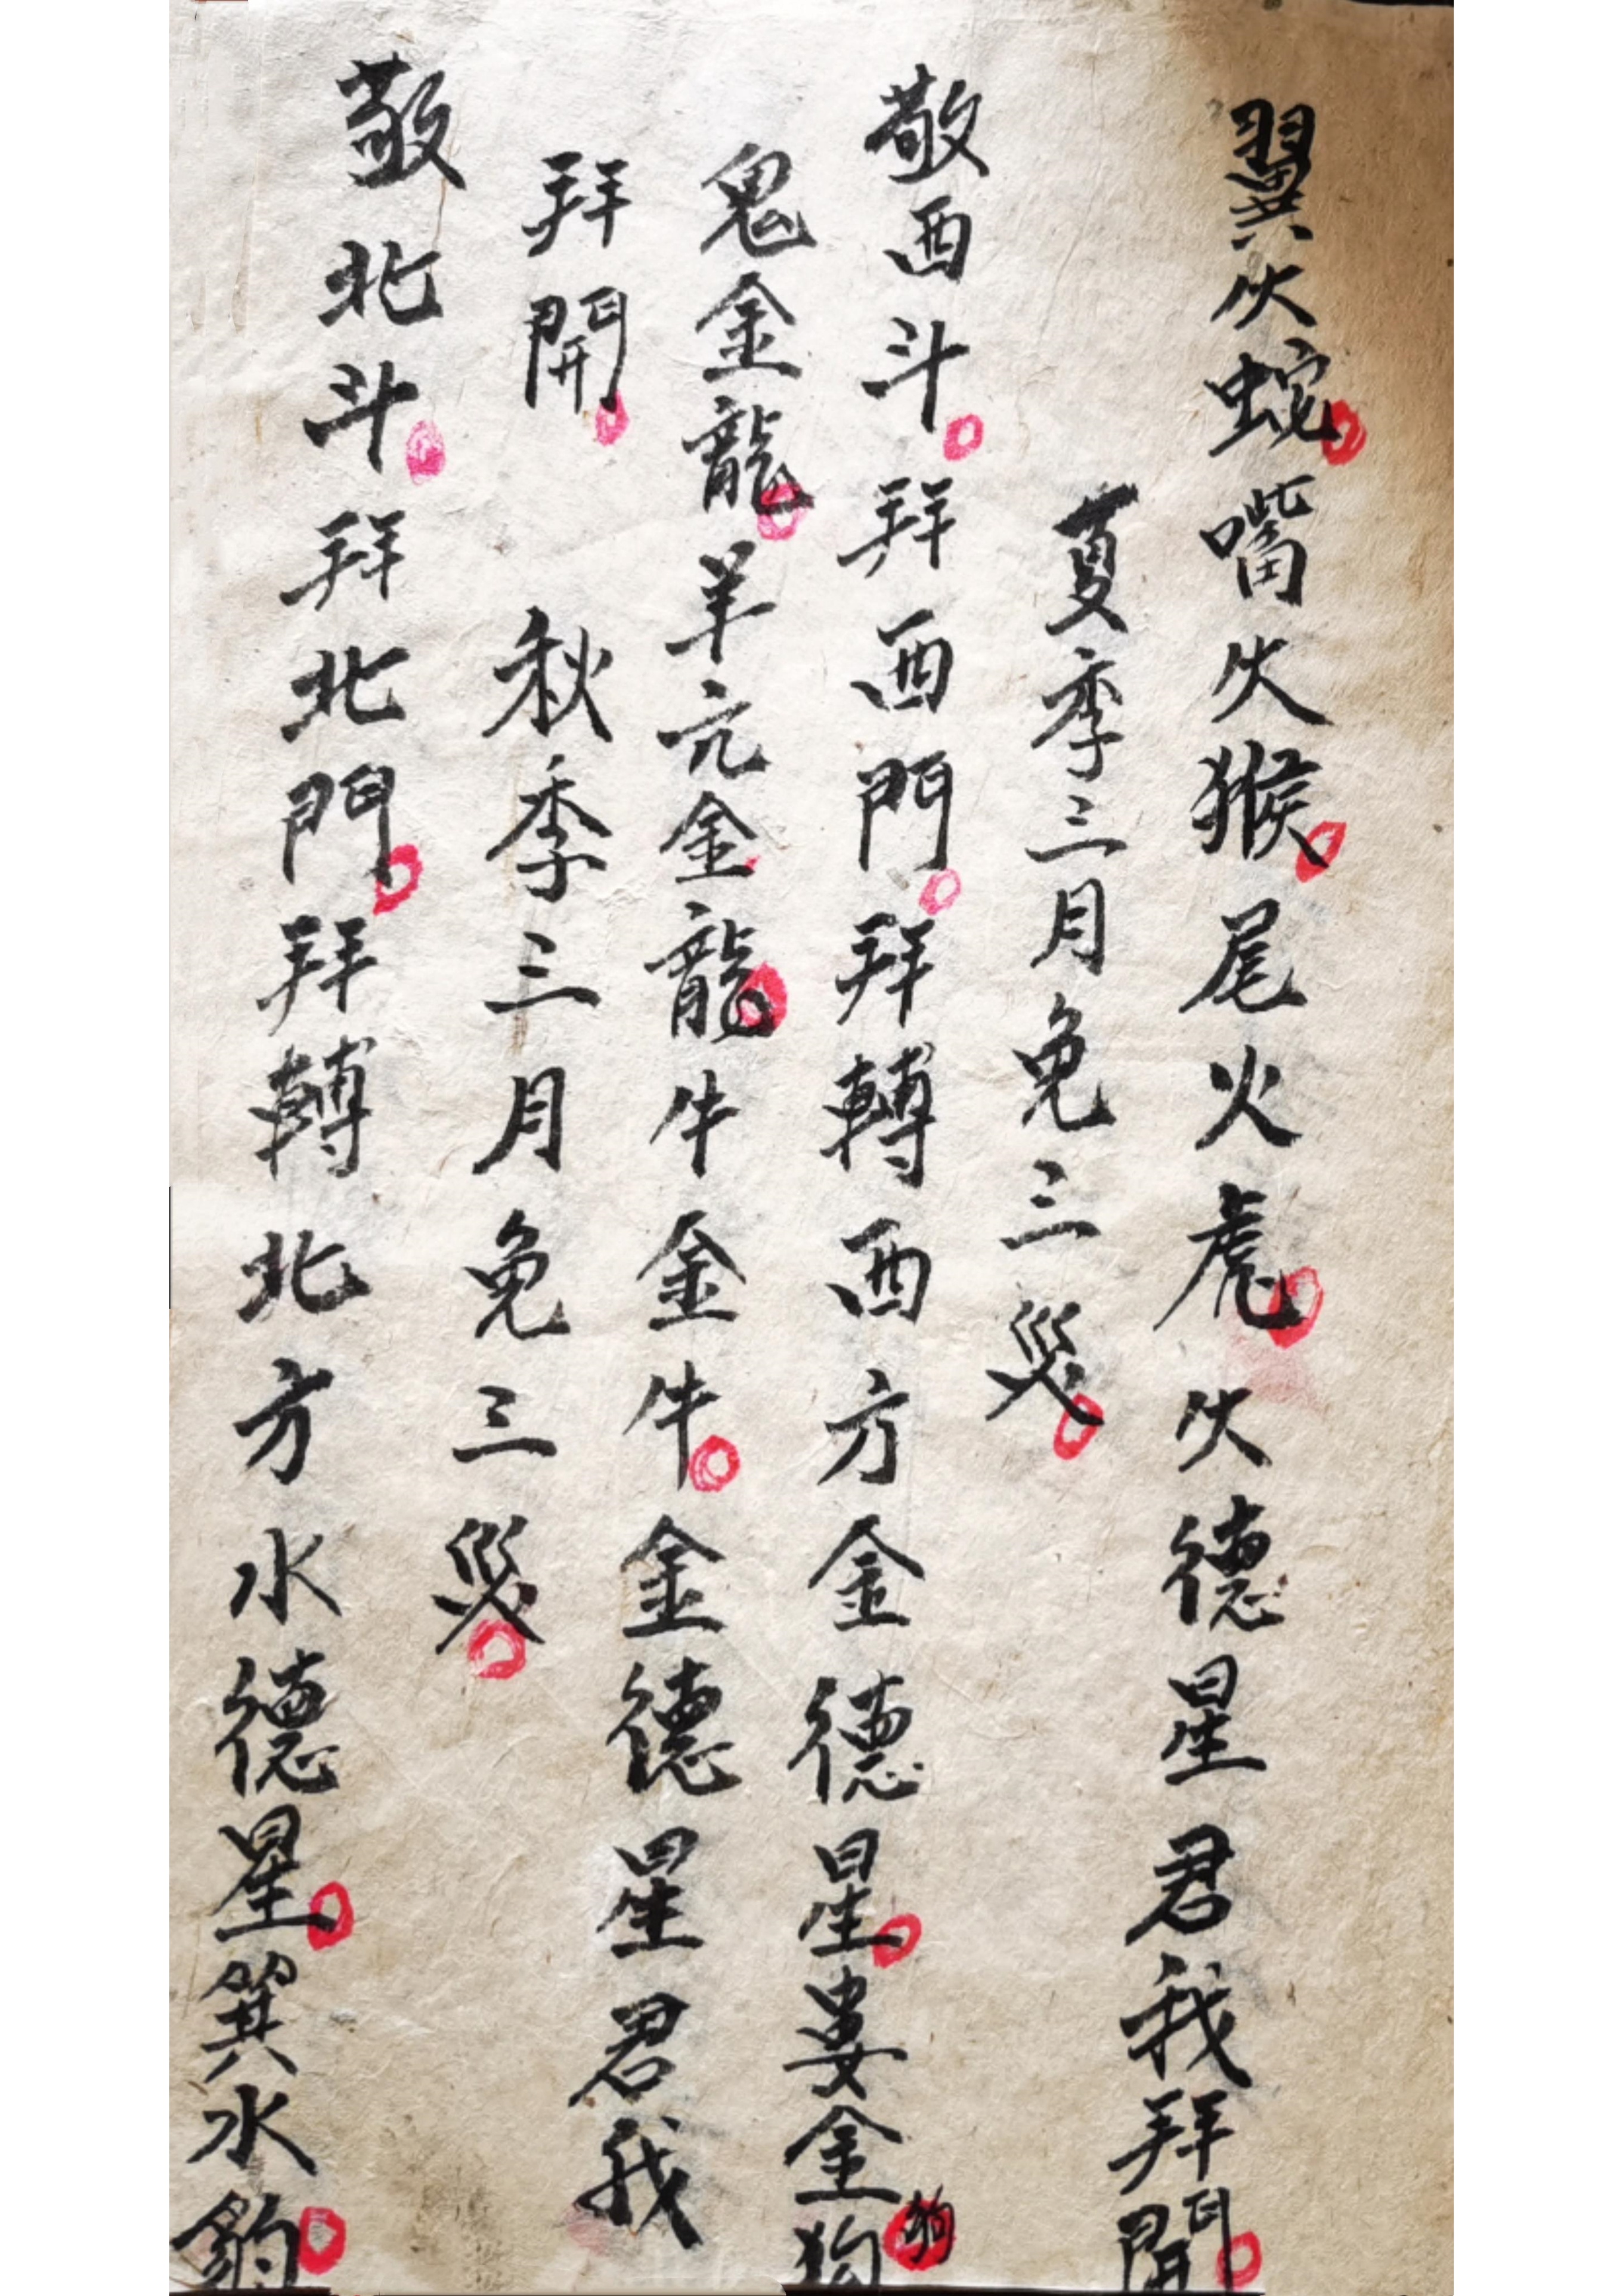 翼火蛇嘴火猴尾火虎火德星君我拜開
夏季三月免三災
敬西斗拜西門拜轉西方金德星婁金狗狗
鬼金龍羊亢金龍牛金牛金德星君我
拜開 秋季三月免三災
敬北斗拜北門拜轉北方水德星箕水豹